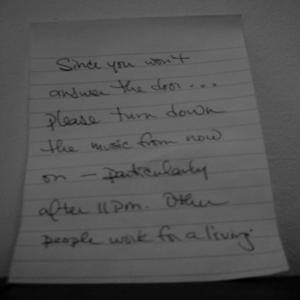 Since you won't
answer the door...
please turn down
the music from now
on — particularly
after 11pm. Other
people work for a living.